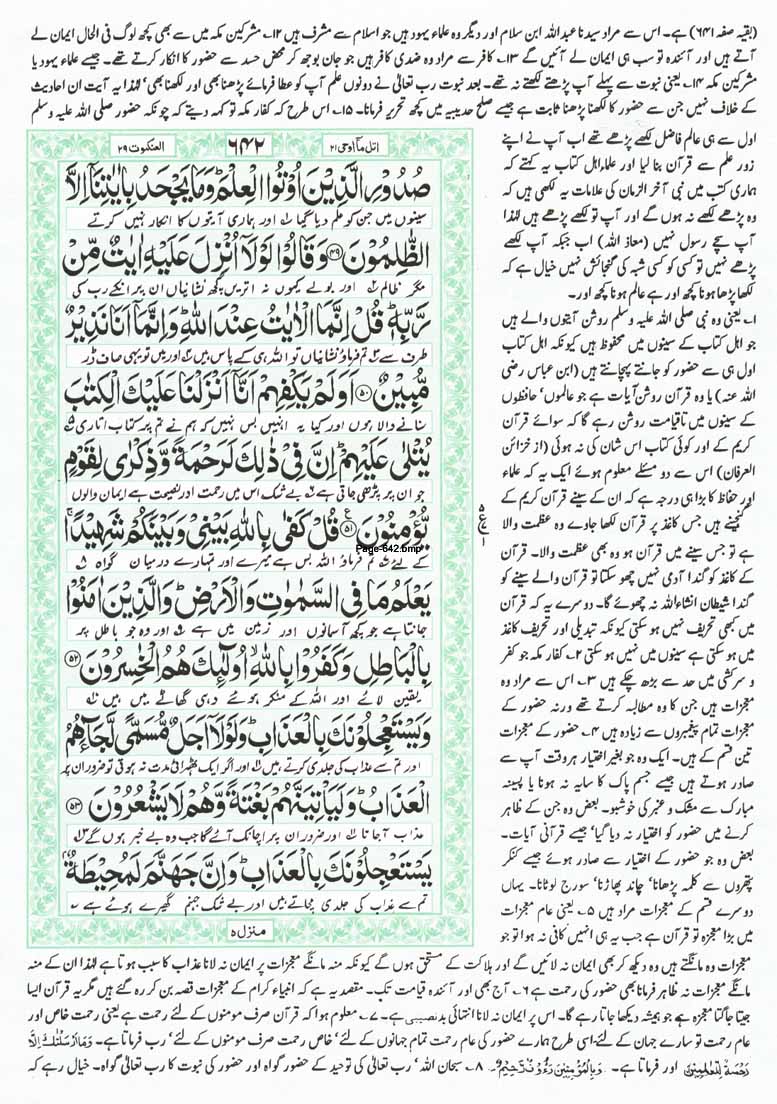 (بقیہ صفحہ ۶۴۱) ہے۔ اس سے مراد سیدنا عبداللہ ابن سلام اور دیگر وہ علماء یہود ہیں جو اسلام سے مشرف ہیں ۱۲۔ مشرکین مکہ میں سے بھی کچھ لوگ فی الحال ایمان لے
آتے ہیں اور آئندہ تو سب ہی ایمان لے آئیں گے ۱۳۔ کافر سے مراد وہ ضدی کافر ہیں جو جان بوجھ کر محض حسد سے حضور کا انکار کرتے تھے۔ جیسے علماء یہود یا
مشرکین مکہ ۱۴۔ یعنی نبوت سے پہلے آپ پڑھتے لکھتے نہ تھے۔ بعد نبوت رب تعالیٰ نے دونوں علم آپ کو عطا فرمائے پڑھنا بھی اور لکھنا بھی' لہٰذا یہ آیت ان احادیث
کے خلاف نہیں جن سے حضور کا لکھنا پڑھنا ثابت ہے جیسے صلح حدیبیہ میں کچھ تحریر فرمانا۔ ۱۵۔ اس طرح کہ کفار مکہ تو کہہ دیتے کہ چونکہ حضور صلی اللہ علیہ وسلم
اول سے ہی عالم فاضل لکھے پڑھے تھے اب آپ نے اپنے
زور علم سے قرآن بنا لیا اور علماء اہل کتاب یہ کہتے کہ
ہماری کتب میں نبی آخر الزمان کی علامات یہ لکھی ہیں کہ
وہ پڑھے لکھے نہ ہوں گے اور آپ تو لکھے پڑھے ہیں لہٰذا
آپ سچے رسول نہیں (معاذ اللہ) اب جبکہ آپ لکھے
پڑھے نہیں تو کسی کو کسی شبہ کی گنجائش نہیں خیال ہے کہ
لکھا پڑھا ہونا کچھ اور ہے عالم ہونا کچھ اور۔
۱۔ یعنی وہ نبی صلی اللہ علیہ وسلم روشن آیتوں والے ہیں
جو اہل کتاب کے سینوں میں محفوظ ہیں کیونکہ اہل کتاب
اول ہی سے حضور کو جانتے پہچانتے ہیں (ابن عباس رضی
اللہ عنہ) یا وہ قرآن روشن آیات ہے جو عالموں' حافظوں
کے سینوں میں تاقیامت روشن رہے گا کہ سوائے قرآن
کریم کے اور کوئی کتاب اس شان کی نہ ہوئی (از خزائن
العرفان) اس سے دو مسئلے معلوم ہوئے ایک یہ کہ علماء
اور حفاظ کا بڑا ہی درجہ ہے کہ ان کے سینے قرآن کریم کے
گنجینے ہیں جس کاغذ پر قرآن لکھا جاوے وہ عظمت والا
ہے تو جس سینے میں قرآن ہو وہ بھی عظمت والا۔ قرآن
کے کاغذ کو گندا آدمی نہیں چھو سکتا تو قرآن والے سینے کو
گندا شیطان انشاءاللہ نہ چھوئے گا۔ دوسرے یہ کہ قرآن
میں کبھی تحریف نہیں ہو سکتی کیونکہ تبدیلی اور تحریف کاغذ
میں ہو سکتی ہے سینوں میں نہیں ہو سکتی ۲۔ کفار مکہ جو کفر
و سرکشی میں حد سے بڑھ چکے ہیں ۳۔ اس سے مراد وہ
معجزات ہیں جن کا وہ مطالبہ کرتے تھے ورنہ حضور کے
معجزات تمام پیغمبروں سے زیادہ ہیں ۴۔ حضور کے معجزات
تین قسم کے ہیں۔ ایک وہ جو بغیر اختیار ہر وقت آپ سے
صادر ہوتے ہیں جیسے جسم پاک کا سایہ نہ ہونا یا پسینہ
مبارک سے مشک و عنبر کی خوشبو۔ بعض وہ جن کے ظاہر
کرنے میں حضور کو اختیار نہ دیا گیا' جیسے قرآنی آیات۔
بعض وہ جو حضور کے اختیار سے صادر ہوئے جیسے کنکر
پتھروں سے کلمہ پڑھانا' چاند پھاڑنا' سورج لوٹانا۔ یہاں
دوسرے قسم کے معجزات مراد ہیں ۵۔ یعنی عام معجزات
میں بڑا معجزہ تو قرآن ہے جب یہ ہی انہیں کافی نہ ہوا تو جو
اتل مآ اوحی ۲۱
۶۴۲
العنکبوت ۲۹
صُدُورِ الَّذِينَ أُوتُوا الْعِلْمَ وَمَا يَجْحَدُ بِآيٰتِنَا إِلَّا
سینوں میں جن کو علم دیا گیا اور ہماری آیتوں کا انکار نہیں کرتے
الظّٰلِمُونَ ﴿۴۹﴾ وَقَالُوا لَوْلَا أُنزِلَ عَلَيْهِ آيٰتٌ مِّن
مگر ظالم اور بولے کیوں نہ اتریں کچھ نشانیاں ان پر انکے رب کی
رَّبِّهٖ قُلْ إِنَّمَا الْآيٰتُ عِندَ اللّٰهِ وَإِنَّمَا أَنَا نَذِيرٌ
طرف سے تم فرماؤ نشانیاں تو اللہ ہی کے پاس ہیں اور میں تو یہی صاف ڈر
مُّبِينٌ ﴿۵۰﴾ أَوَلَمْ يَكْفِهِمْ أَنَّا أَنزَلْنَا عَلَيْكَ الْكِتٰبَ
سنانے والا ہوں اور کیا یہ انہیں بس نہیں کہ ہم نے تم پر کتاب اتاری
يُتْلٰى عَلَيْهِمْ إِنَّ فِي ذٰلِكَ لَرَحْمَةً وَّذِكْرٰى لِقَوْمٍ
جو ان پر پڑھی جاتی ہے بے شک اس میں رحمت اور نصیحت ہے ایمان والوں
يُّؤْمِنُونَ ﴿۵۱﴾ قُلْ كَفٰى بِاللّٰهِ بَيْنِي وَبَيْنَكُمْ شَهِيدًا
Page-642.bmp
کے لئے تم فرماؤ اللہ بس ہے میرے اور تمہارے درمیان گواہ
يَعْلَمُ مَا فِي السَّمٰوٰتِ وَالْأَرْضِ وَالَّذِينَ آمَنُوا
جانتا ہے جو کچھ آسمانوں اور زمین میں ہے اور وہ جو باطل پر
بِالْبَاطِلِ وَكَفَرُوا بِاللّٰهِ أُولٰٓئِكَ هُمُ الْخٰسِرُونَ ﴿۵۲﴾
یقین لائے اور اللہ کے منکر ہوئے وہی گھاٹے میں ہیں
وَيَسْتَعْجِلُونَكَ بِالْعَذَابِ وَلَوْلَا أَجَلٌ مُّسَمًّى لَّجَآءَهُمُ
اور تم سے عذاب کی جلدی کرتے ہیں اور اگر ایک ٹھہرائی مدت نہ ہوتی تو ضرور ان پر
الْعَذَابُ وَلَيَأْتِيَنَّهُم بَغْتَةً وَّهُمْ لَا يَشْعُرُونَ ﴿۵۳﴾
عذاب آ جاتا اور ضرور ان پر اچانک آئے گا جب وہ بے خبر ہوں گے
يَسْتَعْجِلُونَكَ بِالْعَذَابِ وَإِنَّ جَهَنَّمَ لَمُحِيطَةٌ
تم سے عذاب کی جلدی مچاتے ہیں اور بے شک جہنم گھیرے ہوئے ہے
منزل ۵
معجزات وہ مانگتے ہیں وہ دیکھ کر بھی ایمان نہ لائیں گے اور ہلاکت کے مستحق ہوں گے کیونکہ منہ مانگے معجزات پر ایمان نہ لانا عذاب کا سبب ہوتا ہے لہٰذا ان کے منہ
مانگے معجزات نہ ظاہر فرمانا بھی حضور کی رحمت ہے ۶۔ آج بھی اور آئندہ قیامت تک۔ مقصد یہ ہے کہ انبیاء کرام کے معجزات قصہ بن کر رہ گئے ہیں مگر یہ قرآن ایسا
جیتا جاگتا معجزہ ہے جو ہمیشہ دیکھا جاتا رہے گا۔ اس پر ایمان نہ لانا انتہائی بدنصیبی ہے۔ ۷۔ معلوم ہوا کہ قرآن صرف مومنوں کے لئے رحمت ہے یعنی رحمت خاص اور
عام رحمت تو سارے جہان کے لئے ہے۔ اسی طرح ہمارے حضور کی عام رحمت تمام جہانوں کے لئے' خاص رحمت صرف مومنوں کے لئے' رب فرماتا ہے۔ وَمَا أَرْسَلْنٰكَ إِلَّا
رَحْمَةً لِّلْعٰلَمِينَ اور فرماتا ہے۔ وَبِالْمُؤْمِنِينَ رَءُوفٌ رَّحِيمٌ۔ ۸۔ سبحان اللہ' رب تعالیٰ کی توحید کے حضور گواہ اور حضور کی نبوت کا رب تعالیٰ گواہ۔ خیال رہے کہ